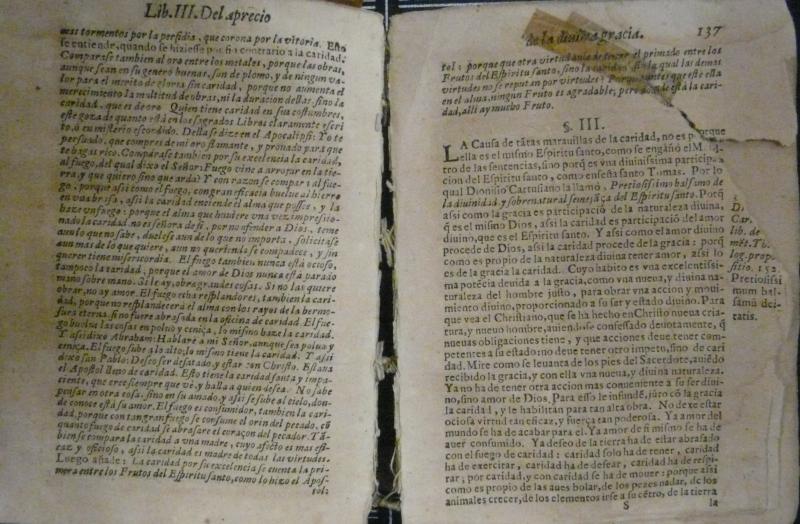 Lib. III. Del aprecio
mas tormentos por la perfidia, que corona por la vitoria. Esto
se entiende, quando se hiziesse por fin contrario a la caridad.
Comparase tambien al oro entre los metales, porque las obras,
aunque sean en su genero buenas, son de plomo, y de ningun va-
lor para el merito de gloria sin caridad, porque no aumenta el
merecimiento la multitud de obras, ni la duracion dellas, sino la
caridad, que es de oro. Quien tiene caridad en sus costumbres,
este goza de quanto está en los sagrados Libros claramente escri
to, ò en misterio escondido. Della se dize en el Apocalipsi: Yo te
persuado, que compres de mi oro flamante, y prouado para que
te bagas rico. Comparase tambien por su excelencia la caridad,
al fuego, del qual dixo el Señor: Fuego vine a arrojar en la tie-
rra, y que quiero sino que arda? Y con razon se compara al fue-
go, porque assi como el fuego, con gran eficacia buelue al hierro
en viua brasa, assi la caridad enciende el alma que possee, y la
haze vn fuego: porque el alma que huuiere vna vez impressio-
nado la caridad, no es señora de si, por no ofender a Dios, teme
aun lo que no sabe, duelese aun de lo que no importa, solicitase
aun mas de lo que quiere, aun no queriendo se compadece, y sin
querer tiene misericordia. El fuego tambien nunca está ocioso,
tampoco la caridad, porque el amor de Dios nunca està parado
mano sobre mano. Si le ay, obra grandes cosas. Si no las quiere
obrar, no ay amor. El fuego echa resplandores, tambien la cari-
dad, porque no resplandecerà el alma con los rayos de la hermo-
sura eterna, si no fuere abrasada en la oficina de caridad. El fue-
go buelue las cosas en poluo y ceniça, lo mismo haze la caridad.
Y assi dixo Abraham: Hablarè a mi Señor, aunque sea poluo y
ceniça. El fuego sube a lo alto, lo mismo tiene la caridad: Y assi
dixo san Pablo: Deseo ser desatado, y estar con Christo. Estaua
el Apostol lleno de caridad. Esto tiene la caridad santa y impa-
ciente, que cree siempre que vè, y halla a quien desea. No sabe
pensar en otra cosa, sino en su amado, y assi se sube al cielo, don-
de conoce està su amor. El fuego es consumidor, tambien la cari-
dad, porque con tan gran fuego se consume el orin del pecado, cõ
quanto fuego de caridad se abrasare el coraçon del pecador. Tã-
bien se compara la caridad a vna madre, cuyo afecto es mas efi-
caz y oficioso, assi la caridad es madre de todas las virtudes.
Luego añade: La caridad por su excelencia se cuenta la pri-
mera entre los Frutos del Espiritu santo, como lo hizo el Apos-
tol:
de la diuina gracia. 137
tol: porque que otra virtud auia de tener el primado entre los
Frutos del Espiritu santo, sino la caridad, sin la qual las demas
virtudes no se reputan por virtudes? Porque antes que este ella
en el alma, ningun Fruto es agradable; pero donde està la cari-
dad, alli ay mucho Fruto.
§. III.
LA Causa de tãtas marauillas de la caridad, no es porque
ella es el mismo Espiritu santo, como se engañò el Maes-
tro de las sentencias, sino porq̃ es vna diuinissima participa-
cion del Espiritu santo, como enseña santo Tomas. Por lo
qual Dionisio Cartusiano la llamò, Preciosissimo balsamo de
la diuinidad, y sobrenatural semejãça del Espiritu santo. Porq̃
assi como la gracia es participaciõ de la naturaleza diuina,
q̃ es el mismo Dios, assi la caridad es participaciõ del amor
diuino, que es el Espiritu santo. Y assi como el amor diuino
procede de Dios, assi la caridad procede de la gracia: porq̃
como es propio de la naturaleza diuina tener amor, assi lo
es de la gracia la caridad. Cuyo habito es vna excelentissi-
ma potẽcia deuida a la gracia, como vna nueua, y diuina na-
turaleza del hombre justo, para obrar vna accion y moui-
miento diuino, proporcionado a su ser y estado diuino. Para
que vea el Christiano, que se ha hecho en Christo nueua cria-
tura, y nueuo hombre, auiendose confessado deuotamente, q̃
nueuas obligaciones tiene, y que acciones deue tener com-
petentes a su estado: no deue tener otro impetu, sino de cari
dad. Mire como se leuanta de los pies del Sacerdote, auiẽdo
recibido la gracia, y con ella vna nueua, y diuina naturaleza.
Ya no ha de tener otra accion mas conueniente a su ser diui-
no, sino amor de Dios. Para esso le infundẽ, juto cõ la gracia
la caridad, y le habilitan para tan alta obra. No dexe estar
ociosa virtud tan eficaz, y fuerça tan poderosa. Ya amor del
mundo se ha de acabar para el. Ya amor de si mismo se ha de
auer consumido. Ya deseo de la tierra ha de estar abrasado
con el fuego de caridad: caridad solo ha de tener, caridad
ha de exercitar, caridad ha de desear, caridad ha de respi-
rar; por caridad, y con caridad se ha de mouer: porque assi
como es propio de las aues bolar, de los pezes nadar, de los
animales crecer, de los elementos irse a su cẽtro, de la tierra
S la
D.
Car.
lib. de
mët. Th.
log. prop-
sitio. 152.
Preciosissi
mum bal
samũ dei-
tatis.